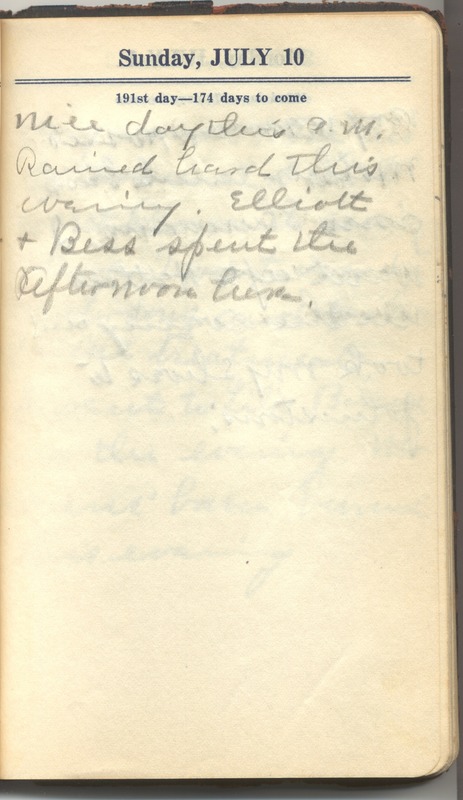 Sunday, JULY 10
191st day—174 days to come
Nice day this a.m.
Rained hard this
evening. Elliott
+ Bess spent the
afternoon here.